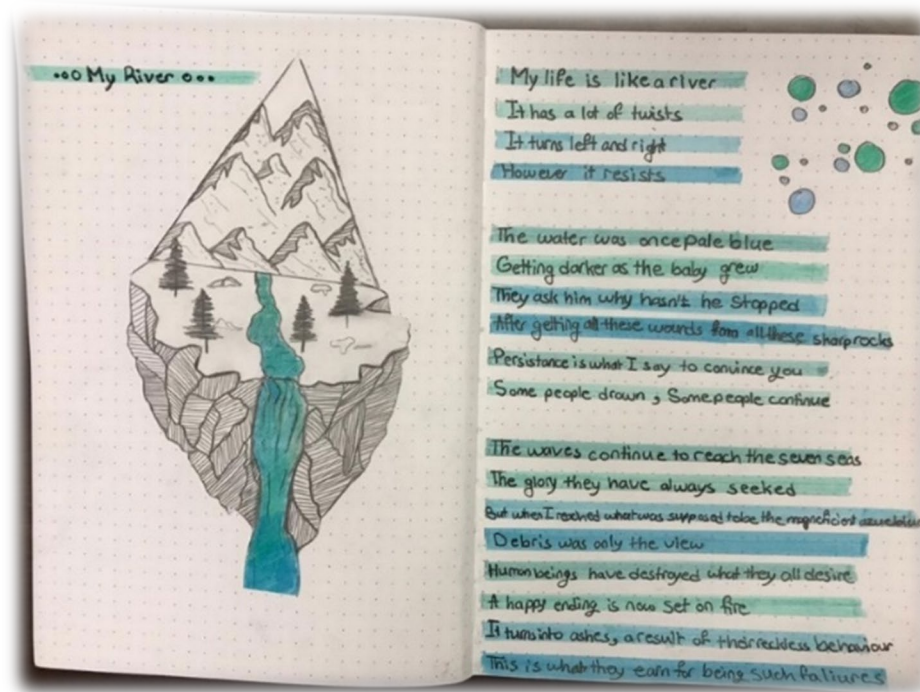 My River
My life is like a river
It has a lot of twists
It turns left and right
However it resists
The water was once pale blue
Getting darker as the baby grew
They ask him why hasn't he stopped
After getting all these wounds from all these sharp rocks
Persistance is what I say to convince you
Some people drown , Some people continue
The waves continue to reach the seven seas
The glory they have always seeked
But when I reached what was supposed to be the magnificient
Debris was only the view
Human beings have destroyed what they all desire
A happy ending is now set on fire
It turns into ashes, a result of their reckless behaviour
This is what they earn for being such faliures